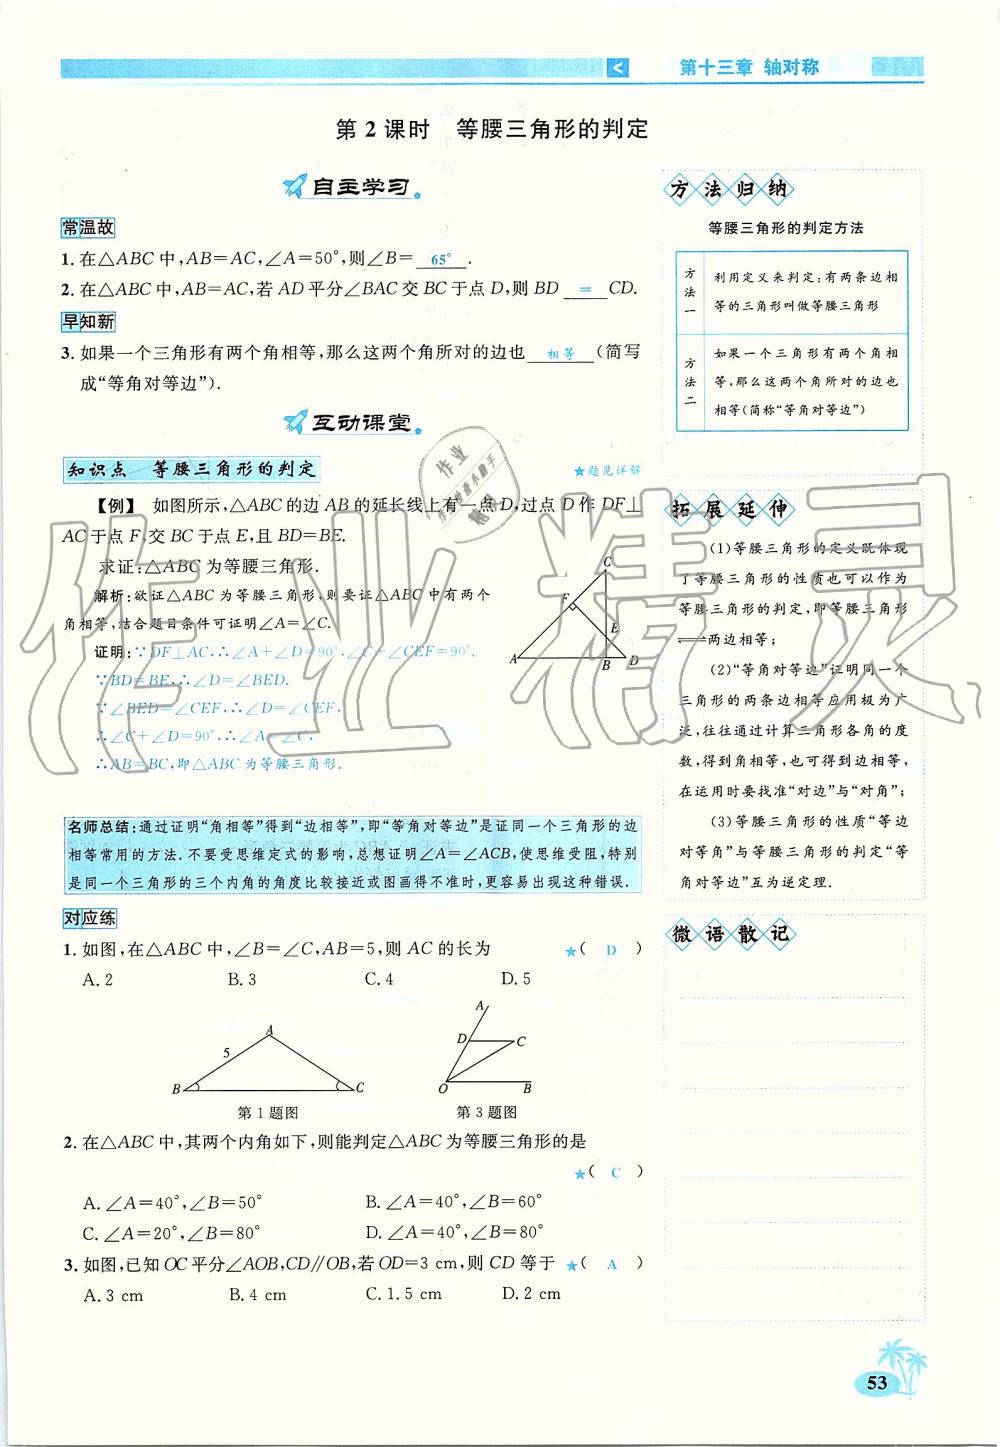 第十三章 轴对称
第2课时 等腰三角形的判定
自主学习
常温故
1. 在△ABC中,AB=AC,∠A=50°,则∠B= 65° .
2. 在△ABC中,AB=AC,若AD平分∠BAC交BC于点D,则BD = CD.
早知新
3. 如果一个三角形有两个角相等,那么这两个角所对的边也 相等 (简写
成“等角对等边”).
互动课堂
知识点 等腰三角形的判定
★题见详解
【例】 如图所示,△ABC的边AB的延长线上有一点D,过点D作DF⊥
AC于点F,交BC于点E,且BD=BE.
求证:△ABC为等腰三角形.
解析:欲证△ABC为等腰三角形,则要证△ABC中有两个
角相等,结合题目条件可证明∠A=∠C.
证明:∵DF⊥AC,∴∠A+∠D=90°,∠C+∠CEF=90°.
∵BD=BE,∴∠D=∠BED.
∵∠BED=∠CEF,∴∠D=∠CEF.
∴∠C+∠D=90°,∴∠A=∠C.
∴AB=BC,即△ABC为等腰三角形.
C
F
E
A
B
D
名师总结:通过证明“角相等”得到“边相等”,即“等角对等边”是证同一个三角形的边
相等常用的方法.不要受思维定式的影响,总想证明∠A=∠ACB,使思维受阻,特别
是同一个三角形的三个内角的角度比较接近或图画得不准时,更容易出现这种错误.
对应练
1. 如图,在△ABC中,∠B=∠C,AB=5,则AC的长为 ★( D )
A. 2 B. 3 C. 4 D. 5
A
5
B
C
第1题图
A
D
C
O
B
第3题图
2. 在△ABC中,其两个内角如下,则能判定△ABC为等腰三角形的是
★( C )
A. ∠A=40°,∠B=50° B. ∠A=40°,∠B=60°
C. ∠A=20°,∠B=80° D. ∠A=40°,∠B=80°
3. 如图,已知OC平分∠AOB,CD∥OB,若OD=3 cm,则CD等于 ★( A )
A. 3 cm B. 4 cm C. 1.5 cm D. 2 cm
方法归纳
等腰三角形的判定方法
方法一
利用定义来判定:有两条边相
等的三角形叫做等腰三角形
方法二
如果一个三角形有两个角相
等,那么这两个角所对的边也
相等(简称“等角对等边”)
拓展延伸
(1)等腰三角形的定义既体现
了等腰三角形的性质也可以作为
等腰三角形的判定,即等腰三角形
⇌两边相等;
(2)“等角对等边”证明同一个
三角形的两条边相等应用极为广
泛,往往通过计算三角形各角的度
数,得到角相等,也可得到边相等,
在运用时要找准“对边”与“对角”;
(3)等腰三角形的性质“等边
对等角”与等腰三角形的判定“等
角对等边”互为逆定理.
微语散记
53
作业精灵